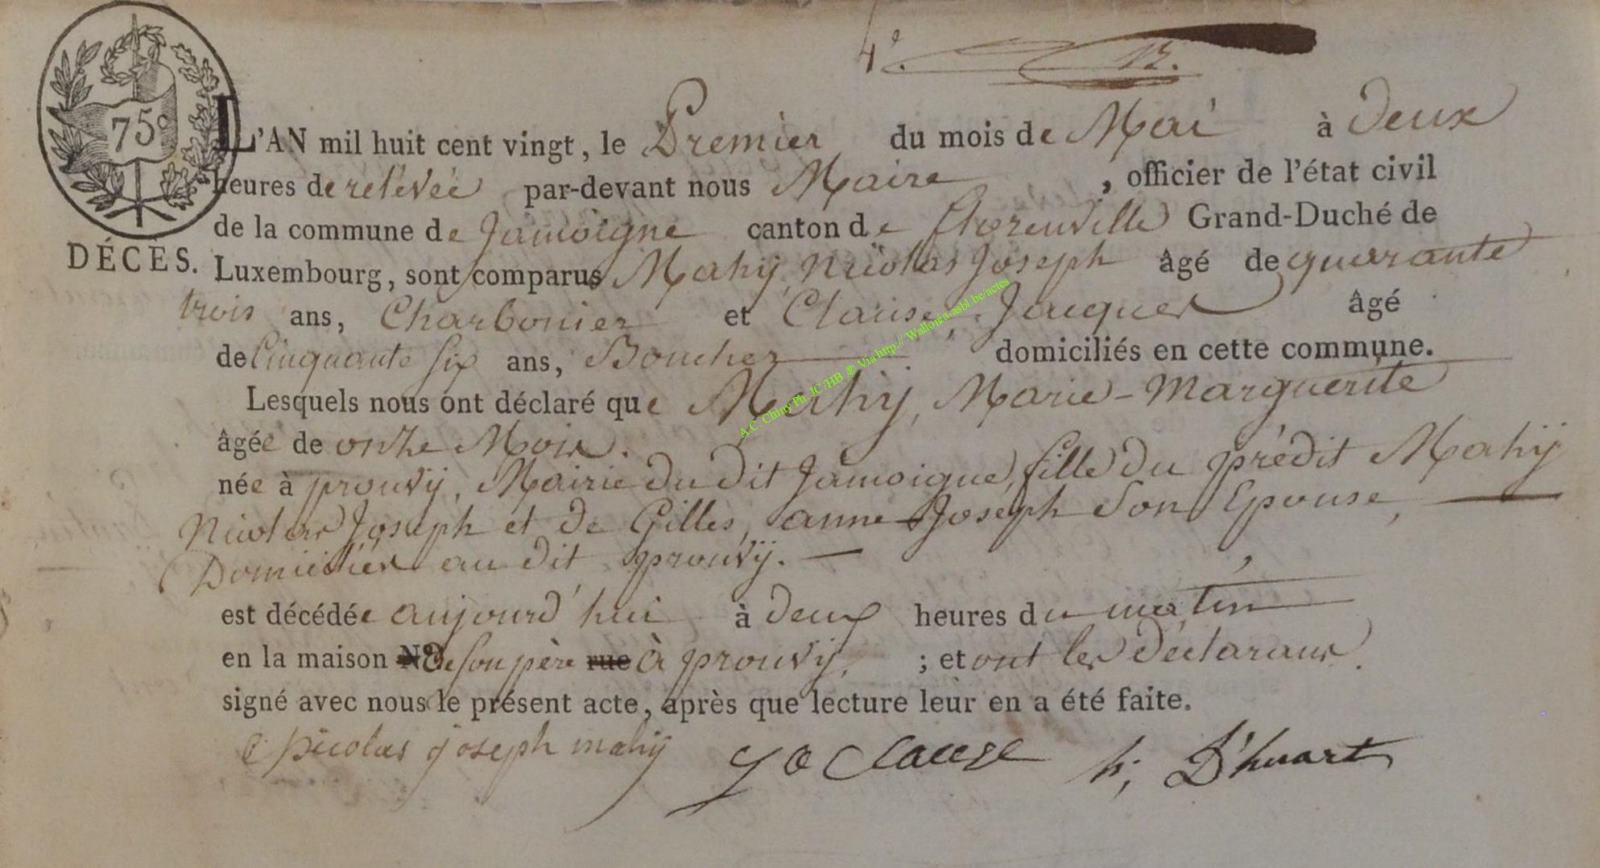 4e. 13.
75c
L'AN mil huit cent vingt, le Premier du mois de Mai à deux
heures de relévée par-devant nous Maire , officier de l'état civil
de la commune de Jamoigne canton de Grand-Duché de
DÉCÈS. Luxembourg, sont comparus Mahÿ, Nicolas Joseph âgé de quarante
trois ans, Charbonier et Clause, Jacques âgé
de Cinquante Six ans, Boucher domiciliés en cette commune.
Lesquels nous ont déclaré que Mahÿ, Marie-Marguerite
âgée de onze Mois.
née à prouvÿ, Mairie du dit Jamoigne, fille du prédit Mahÿ
Nicolas Joseph et de Gilles, anne Joseph Son Epouse,
Domiciliés au dit prouvÿ.
est décédée aujourd'hui à deux heures du matin
en la maison N° de son père rue à prouvÿ. ; et ont les déclarans.
signé avec nous le présent acte, après que lecture leur en a été faite.
Nicolas joseph mahÿ Clause h; D'huart
A.C. Chiny Ph. JC HB @ Via http:// Wallonia-asbl.be/actes